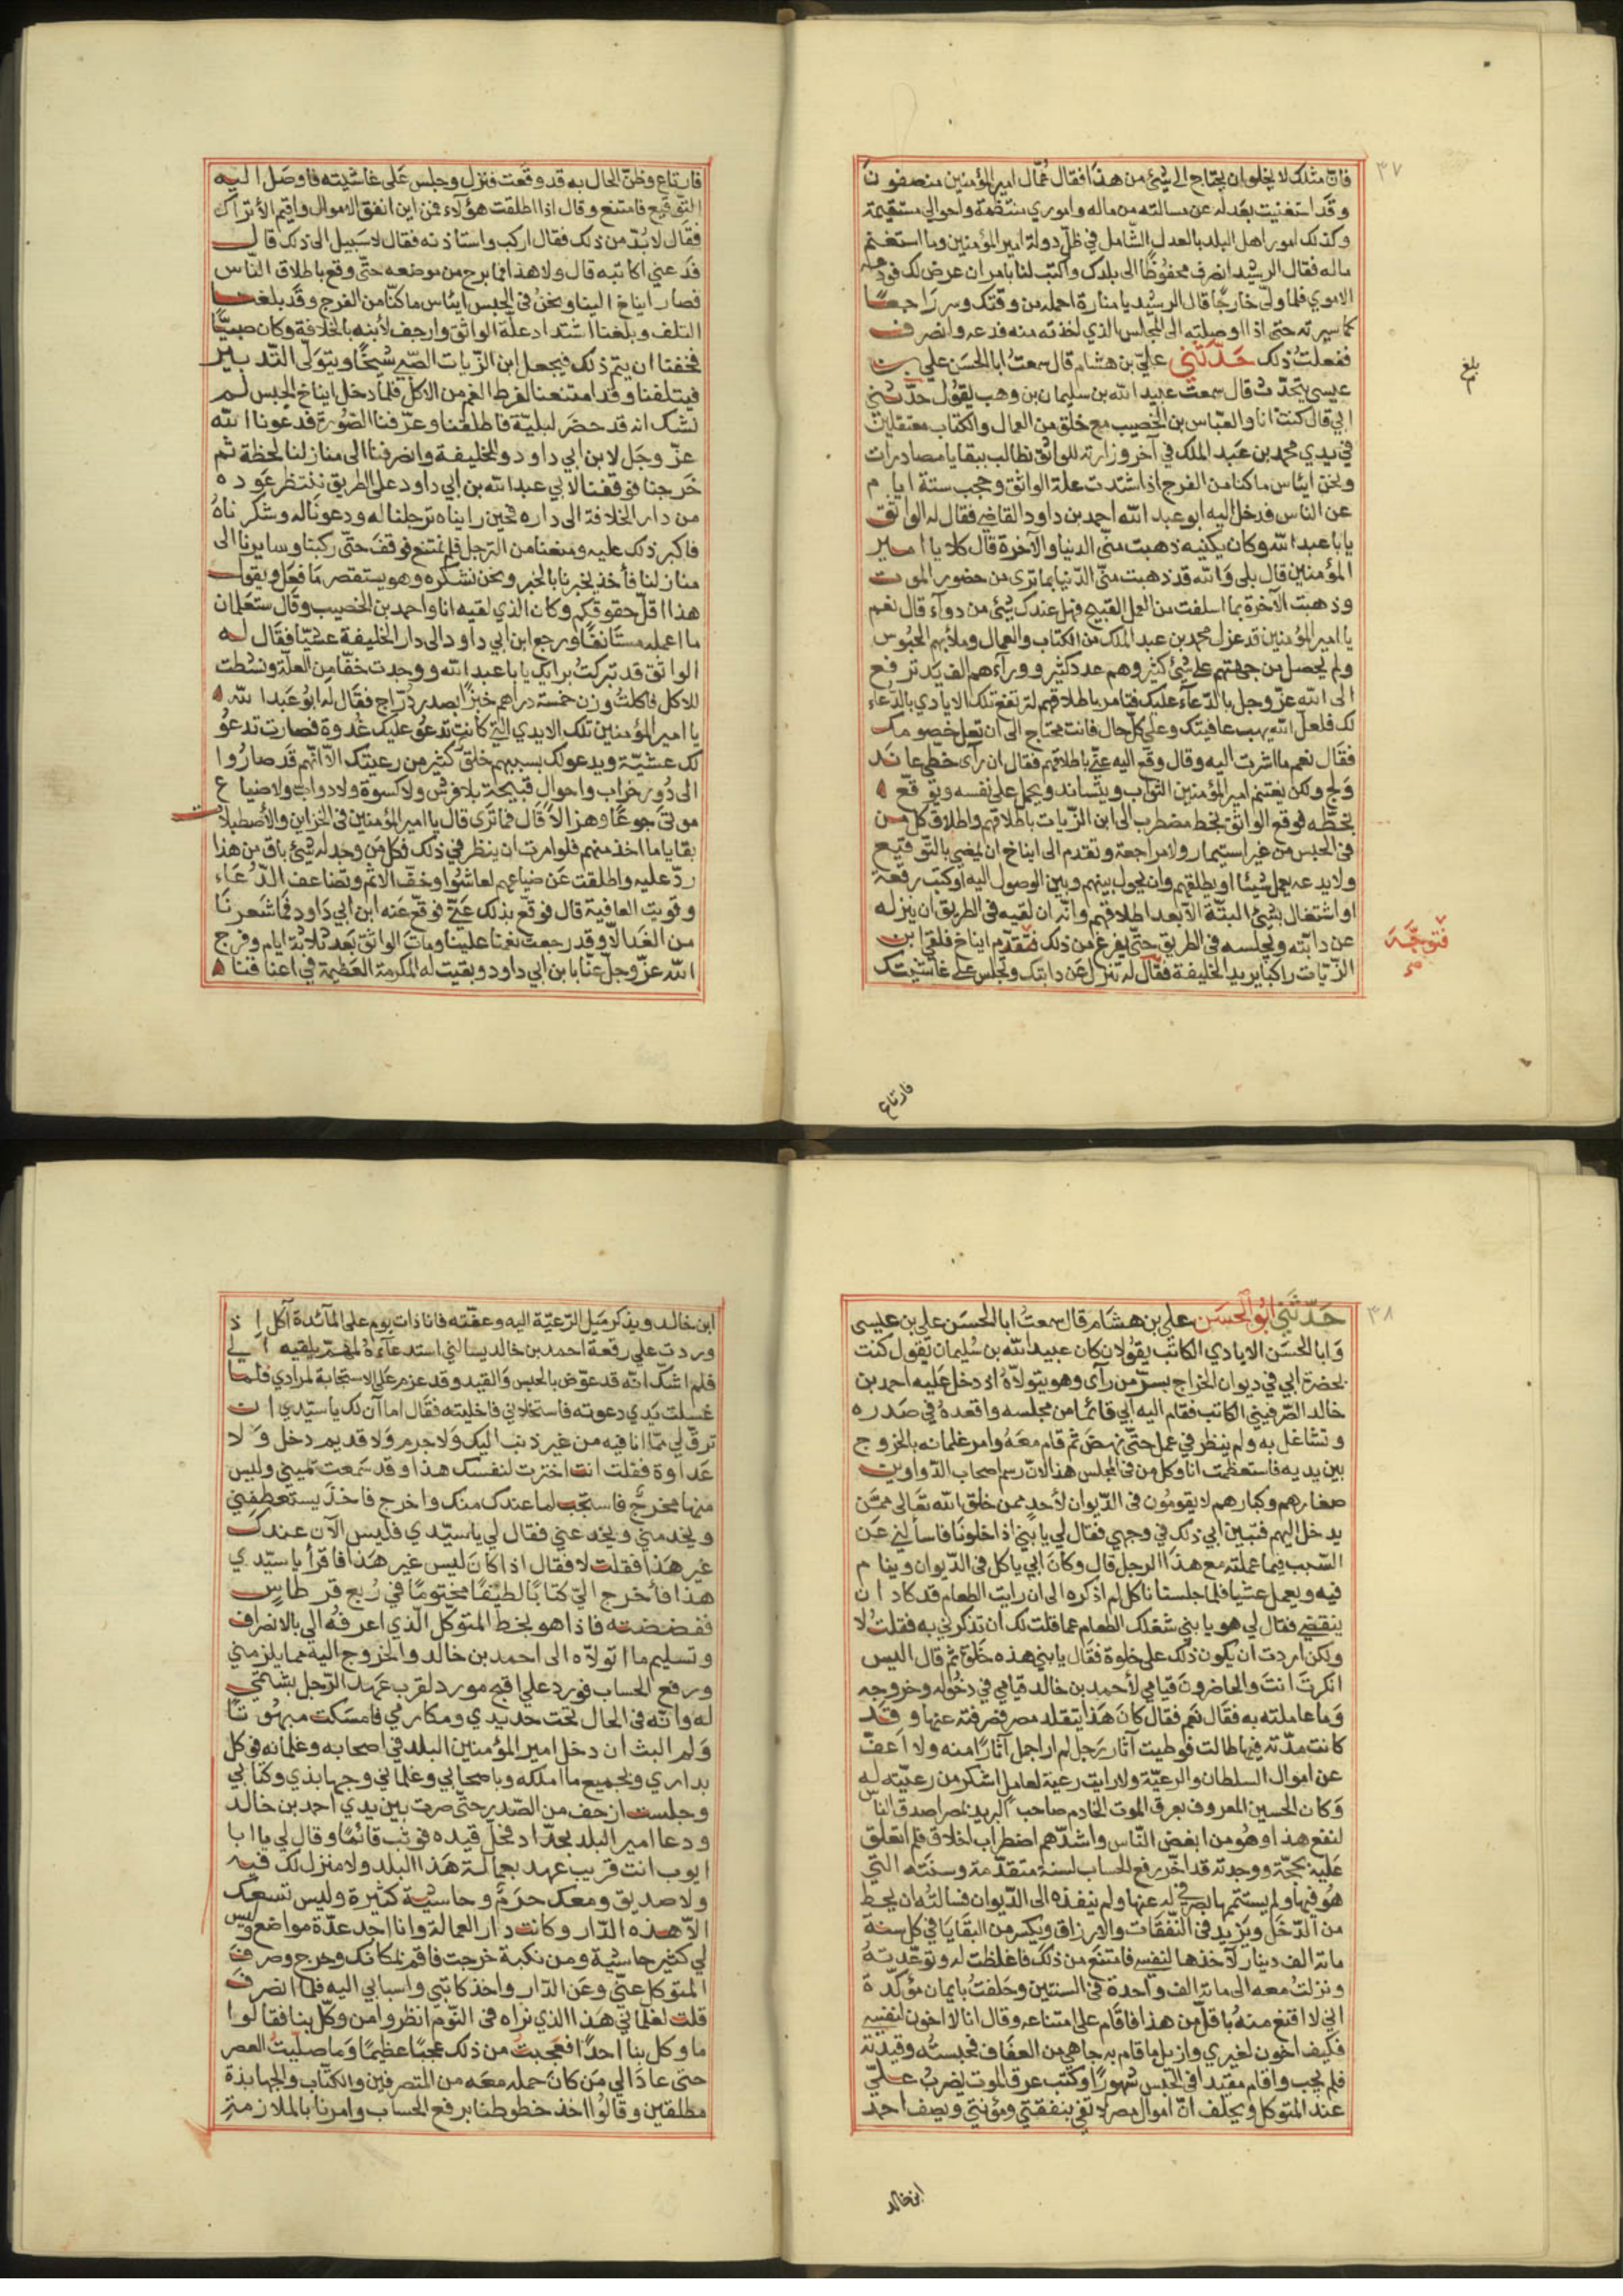 ٣٧
فان مثلك لا يخلو ان يحتاج الى شيئ من هذا فقال عُمّال امير المؤمنين منصفون
وقد استغنيت بعدله عن مسالته من ماله واموري منتظمة واحوالي مستقيمة
وكذلك امور اهل البلد بالعدل الشامل في ظلّ دولة امير المؤمنين وما استغنم
ماله فقال الرشيد انصرف محفوظًا الى بلدك واكتب لنا بامر ان عرض لك فودعه
الاموي فلما ولى خارجًا قال الرشيد يا منارة احمله من وقتك وسر راجعًا
كما سيرته حتى اذا اوصلته الى المجلس الذي اخذته منه فدعه وانصرف
ففعلتُ ذلك حَدّثني عليّ بن هشام قال سمعتُ ابا الحسَن علي بن
عيسى يتحدّث قال سمعت عبيد الله بن سليمان بن وهب يقُول حدّثني
ابي قال كنت انا والعبّاس بن الخصيب مع خلق من العمال والكتاب معتقلين
في يدي محمد بن عَبد الملك في آخر وزارته للواثق نطالب ببقايا مصادرات
ونحن ايئاس ما كنا من الفرج اذ اشتدت علة الواثق وحجب ستة ايام
عن الناس فدخل اليه ابو عبد الله احمد بن داود القاضي فقال له الواثق
يا با عبد الله وكان يكنيه ذهبت منّي الدنيا والآخرة قال كلا يا امير
المؤمنين قال بلى وَالله قد ذهبت منّي الدّنيا بما ترى من حضور الموت
وذهبت الآخرة بما اسلفت من العمل القبيح فهل عندك شيئ من دوآء قال نعم
يا امير المؤمنين قد عزل محمد بن عبد الملك من الكتاب والعمال وملأ بهم الحبُوس
ولم يحصل من جهتهم على شيئ كثير وهم عدد كثير وورآءهم الف يَد ترفع
الى الله عزّ وجل بالدّعآء عليك فتامر باطلاقهم لترتفع تلك الايادي بالدّعاء
لك فلعلّ الله يهب عافيتك وعلى كلّ حال فانت محتاج الى ان تقل خصومك
فقال نعم ما اشرت اليه وقال وقع اليه عنّي باطلاقهم فقال ان رآى خطي عاند
وَلج ولكن يغتنم امير المؤمنين الثواب ويتساند ويحمل على نفسه ويوقّع
بخطّه فوقع الواثق بخط مضطرب الى ابن الزّيات باطلاقهم واطلاق كل من
في الحبس من غير استيمار ولا مراجعة وتقدم الى ايناخ ان يمضي بالتّوقيع
ولا يدعه يعمل شيئا او يطلقهم وان يحول بينهم وبين الوصول اليه او كتب رقعة
او اشتغال بشيئ البتّة الّا بعد اطلاقهم وانّه ان لقيه في الطريق ان ينزله
عن دابّته ويجلسه في الطريق حتّى يفرغ من ذلك فتقدّم ايناخ فلقي ابن
الزيّات راكبا يريد الخليفة فقال له تنزل عَن دابتك وتجلس على غاشيتك
بلغ
فتوجّه
صح
فارتاع
فارتاع وظنّ الحال به قد وقعت فنزل وجلس عَلى غاشيته فاوصَل اليه
التوقيع فامتنع وقال اذا اطلقت هؤلآء فمن اين انفق الاموال واقيم الأتراك
فقَال لا بُدّ من ذلك فقال اركب واستاذنه فقال لا سَبيل الى ذلك قال
فدَعني اكاتبه قال ولا هذا فما برح من موضعه حتّى وقع باطلاق النّاس
فصار ايناخ الينا ونحنُ في الحبس ايئاس ما كنّا من الفرج وقد بلغنا
التلف وبلغنا اشتداد علّة الواثق وارجف لأبنه بالخلافة وكان صبيًّا
فخفنا ان يتم ذلك فيجعل ابن الزّيات الصّبي شيخًا ويتوَلّى التّدبير
فيتلفنا وقد امتنعنا لفرط الغم من الاكل فلمّا دخل ايناخ الحبس لم
نشك انه قد حضَر لبليّة فاطلقنا وعرّفنا الصّورة فدَعونا الله
عزّ وجَل لابن ابي داود وللخليفة وانصرفنا الى منازلنا لحظة ثم
خَرجنا فوقفنا لابي عبد الله بن ابي داود على الطريق ننتظر عَوده
من دار الخلافة الى داره فحين رايناه ترجلنا له ودعونا له وشكرناهُ
فاكبر ذلك عليه ومنعنا من الترجل فلم نمتنع فوقفَ حتّى ركبنا وسايرنا الى
منازلنا فأخذ يخبرنا بالخبر ونحن نشكره وهو يستقصر مَا فعَل ويقول
هذا اقلّ حقوقكم وكان الذي لقيه انا واحمد بن الخصيب وقال ستعلمان
ما اعمله مستَانفًا ورجع ابن ابي داود الى دار الخليفة عشيًّا فقَال له
الواثق قد تبركتُ برايك يا با عبد الله ووجدت خفًّا من العلّة ونشطت
للاكل فاكلتُ وزن خمسة دراهم خبزًا بصدر دُرّاج فقال له ابوُ عَبد الله
يا امير المؤمنين تلك الايدي التي كانت تدعوُ عليك غدوة فصارت تدعوُ
لك عشيّة ويدعو لك بسببهم خلق كثير من رعيتك الّا انّهم قَد صاروا
الى دُور خراب واحوال قبيحة بلا فرش ولا كسوة ولا دواب ولا ضياع
موتى جوعًا وهزالًا قَال فما ترَى قال يا امير المؤمنين في الخزاين والأصطبلات
بقايا ما اخذ منهم فلو امرت ان ينظر في ذلك فكل مَن وجد له شيئ باق من هذا
ردّ عليه واطلقت عَن ضياعهم لعاشوُا وخفّ الاثم وتضاعف الدّعَاء
وقويت العافية قال فوقّع بذلك عَنّي فوقّع عَنه ابن ابي دَاود فما شعرنَا
من الغَد الّا وقد رجعت نعمنا علينا وماتَ الواثق بَعد ثلاثة ايام وفرج
الله عزّ وجلّ عنّا بابن ابي داود وبقيت له المكرمة العَظيمة في اعناقنا
٣٨
حَدّثَنَي ابُو الحسَن علي بن هشام قال سمعتُ ابا الحسَن علي بن عيسى
وَابا الحسَن الايادي الكاتب يقُولان كان عبيد الله بن سُليمان يقول كنت
بحضرة ابي في ديوان الخراج بسرّ من رآى وهو يتولّاهُ اذ دخل عَليه احمد بن
خالد الصّرفيني الكاتب فقام اليه ابي قائمًا من مجلسه واقعدهُ في صَدره
وتشاغل به ولم ينظر في عمل حتّى نهضَ ثم قام معَهُ وامر غلمانه بالخروج
بين يديه فاستعظمت انا وكل من في المجلس هذا لانّ رسم اصحاب الدّواوين
صغارهم وكبارهم لا يقومُون في الدّيوان لأحد ممن خلق الله تعَالى ممّن
يدخل اليهم فتبين ابي ذلك في وجهي فقال لي يا بني اذا خلونَا فاسألني عَن
السّبب فيما عملته مع هذا الرجل قال وكانَ ابي ياكل في الدّيوان وينام
فيه ويعمل عشيا فلما جلسنا ناكل لم اذكره الى ان رايت الطعام قد كاد ان
ينقضي فقال لي هو يا بنيّ شغلك الطعام عما قلت لك ان تذكرني به فقلتُ لا
ولكن اردت ان يكون ذلك على خلوة فقَال يا بني هذه خَلوَة ثم قال اليس
انكرتَ انتَ والحاضرونَ قيامي لأحمد بن خالد قيامي في دخُوله وخروجه
وَما عاملته به فقَال نعم فقال كانَ هَذا يتقلد مصر فصرفته عنها وقَد
كانت مدّته فيها طالت فوطيت آثار رَجل لم ار اجمل آثارًا منه ولا اعفّ
عن اموال السلطان والرعيّة ولا رايت رعية لعامل اشكر من رعيّته له
وَكان الحسين المعروف بعرق الموت الخادم صاحب البريد بمصر اصدق النّاس
لنفع هذا وهُو من ابغض النّاس واشدّهم اضطراب اخلاق فلم اتعلق
عَليه بحجّة ووجدته قد اخّر رفع الحساب لسنة متقدّمة وسنَته التي
هُو فيها ولم يستتمّها بصرفي له عنها ولم ينفذه الى الدّيوان فسالتُه ان يحط
من الدّخَل ويَزيد في النّفقَات والارزاق ويكسر من البقَايَا في كل سنة
ماتة الف دينار لآخذها لنفسي فامتنَع من ذلكَ فاغلظت له وتوعّدتهُ
ونزلتُ معه الى ماتة الف واحدة في السنتين وحَلفتُ بايمان مؤكّدة
اني لا اقنع منهُ باقلّ من هذا فاقَام على امتناعه وقال انا لا اخون لنفسي
فكيف اخون لغيري وازيل ما قام به جاهي من العفَاف فحبسته وقيدته
فلم يجب واقام مقيّدا في الحبس شهورًا وكتب عرق الموت يضربُ عليّ
عند المتوكل ويحلف انّ اموال مصر لا تفي بنفقتي ومؤنتي ويصف احمد
ابن خالد
ابن خالد ويذكر مَيل الرّعيّة اليه وعفّته فانا ذات يوم على المآئدة آكل اذ
وردت علي رقعة احمد بن خالد يسالني استدعآءهُ لمهمّ يلقيه الي
فلم اشكّ انّه قد غرض بالحبس والقيد وقد عزم عَلى الاستجابة لمرادي فلما
غسلت يَدي دعوته فاستخلاني فاخليته فقَال اما آن لك يا سيّدي ان
ترق لي ممّا انا فيه من غير ذنب اليك وَلا جرم وَلا قديم دخل ولا
عَداوة فقلت انت اخترت لنفسك هذا وقد سَمعت يميني وليس
منها مخرجٌ فاستجب لما عندك منك واخرج فاخذ يستعطفني
ويخدمني ويخدعني فقال لي يا سيّدي فليس الآن عندكَ
غير هَذا فقلت لا فقال اذا كانَ ليس غير هَذا فاقرأ يا سيّدي
هذا فأخرج اليّ كتابًا لطيفًا مختومًا في رُبع قرطاس
ففضضته فاذا هو بخط المتوكل الّذي اعرفُه الي بالانصراف
وتسليم ما اتولّاه الى احمد بن خالد والخروج اليه مما يلزمني
ورفع الحساب فورد علي اقبح مورد لقرب عهد الرّجل بشتمي
له وانّه في الحال تحت حديدي ومكارهي فامسَكت مبهُوتًا
وَلم البث ان دخل امير المؤمنين البلد في اصحابه وغلمانه فوكل
بداري وبجميع ما املكه وباصحابي وغلماني وجهابذي وكتابي
وجلست ازحف من الصّدر حتّى صرت بين يدي احمد بن خالد
ودعا امير البلد بحدّاد فحلّ قيده فوثب قائمًا وقال لي يا ابا
ايوب انت قريب عهد بعمالة هَذا البلد ولا منزل لك فيه
ولا صديق ومعك حرمٌ وحاشيّة كثيرة وليس تسعك
الّا هذه الدّار وكانت دار العمالة وانا اجد عدّة مواضع وليس
لي كثير حاشية ومن نكبة خرجت فاقم بمكانك وخرج وصرف
المتوكل عنّي وعَن الدّار واخذ كاتبي واسبابي اليه فلما انصرف
قلت لغلماني هَذا الذي نراه في النّوم انظروا من وكّل بنا فقالوا
ما وكل بنا احدًا فعجبتُ من ذلك عجبًا عظيمًا وَما صلّيتُ العصر
حتى عادَ الي مَن كانَ حمله معَه من المتصرفين والكتّاب والجهابذة
مطلقين وقالوا اخذ خطوطنا برفع الحساب وامرنا بالملازمة